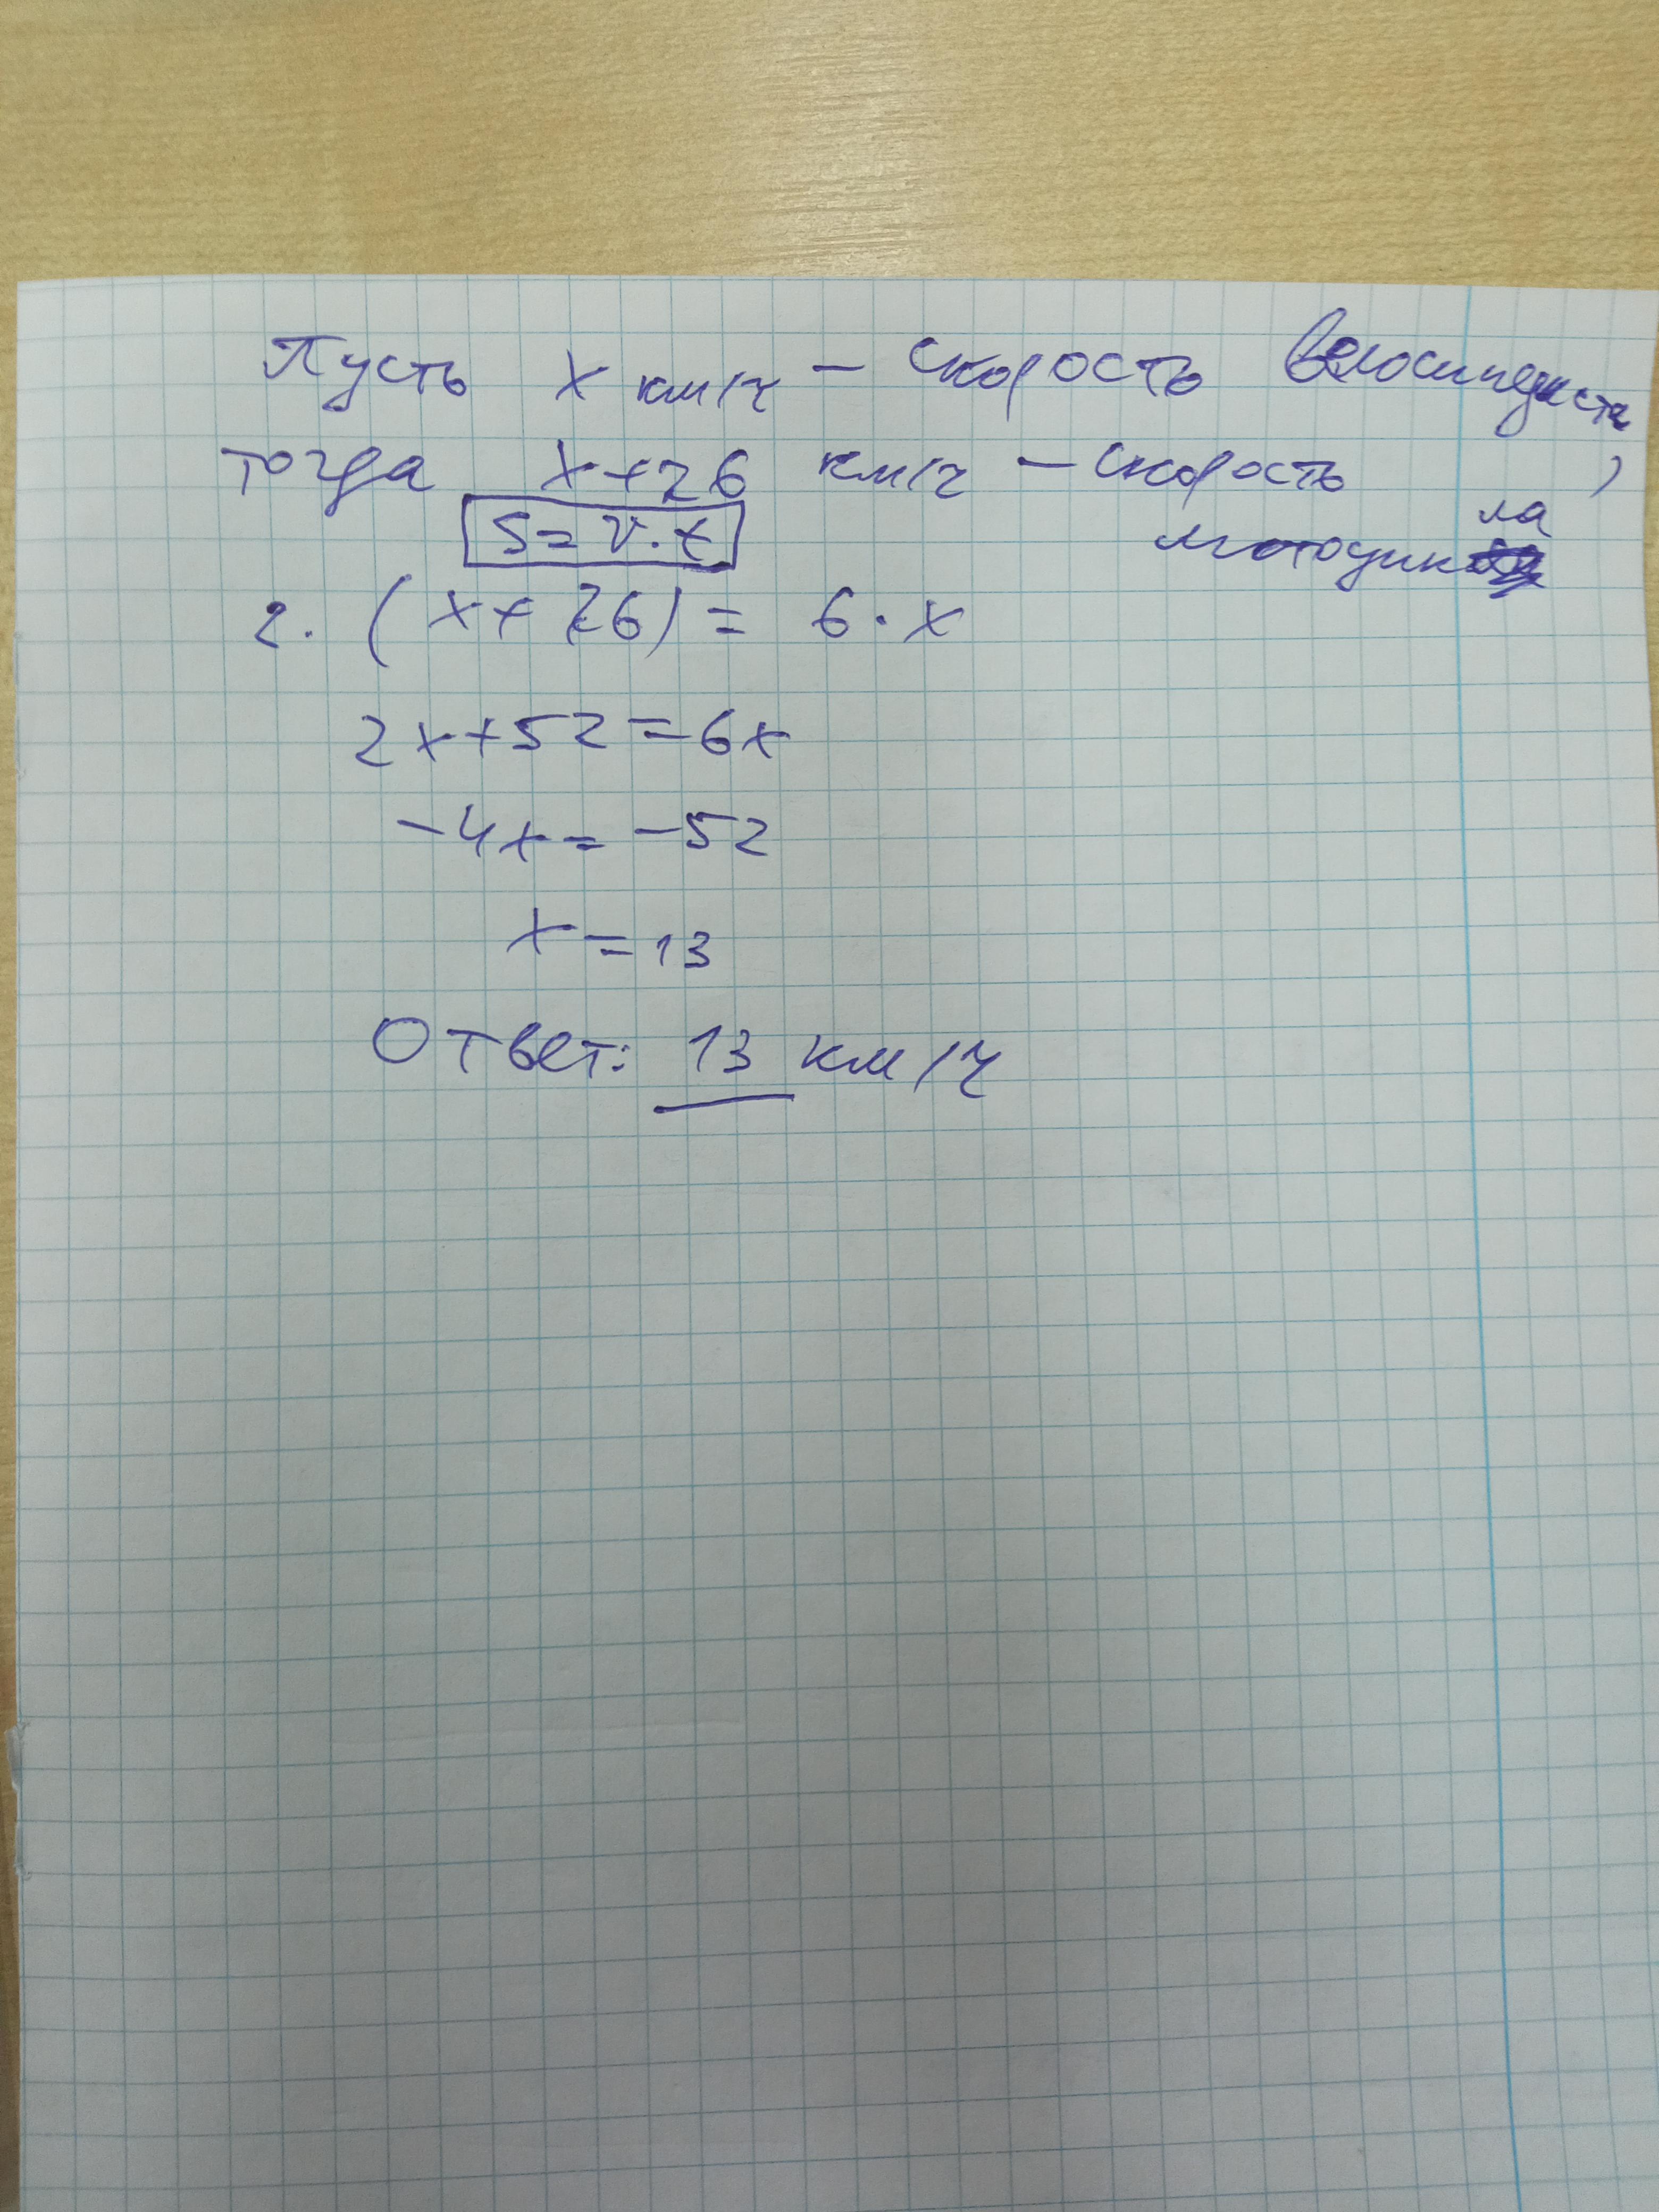 Пусть x км/ч – скорость велосипедиста,
тогда x+26 км/ч – скорость
мотоцикла
S = V · t
2 · (x + 26) = 6 · x
2x + 52 = 6x
-4x = -52
x = 13
Ответ: 13 км/ч